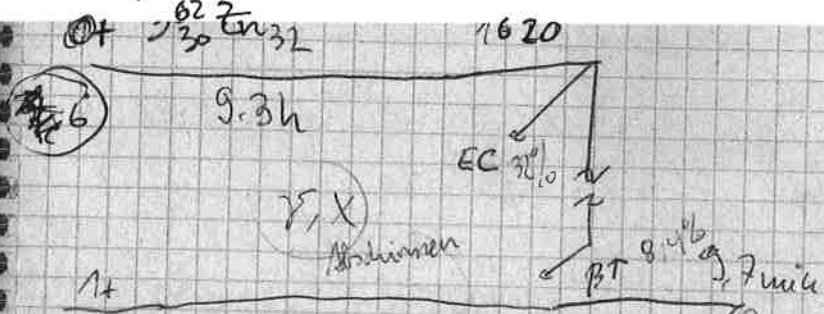 0+ 62 30 Zn 32 1620
6 9.3h
EC 32%
γ, X
Abschirmen
β+ 8,4% 9,7 min
1+